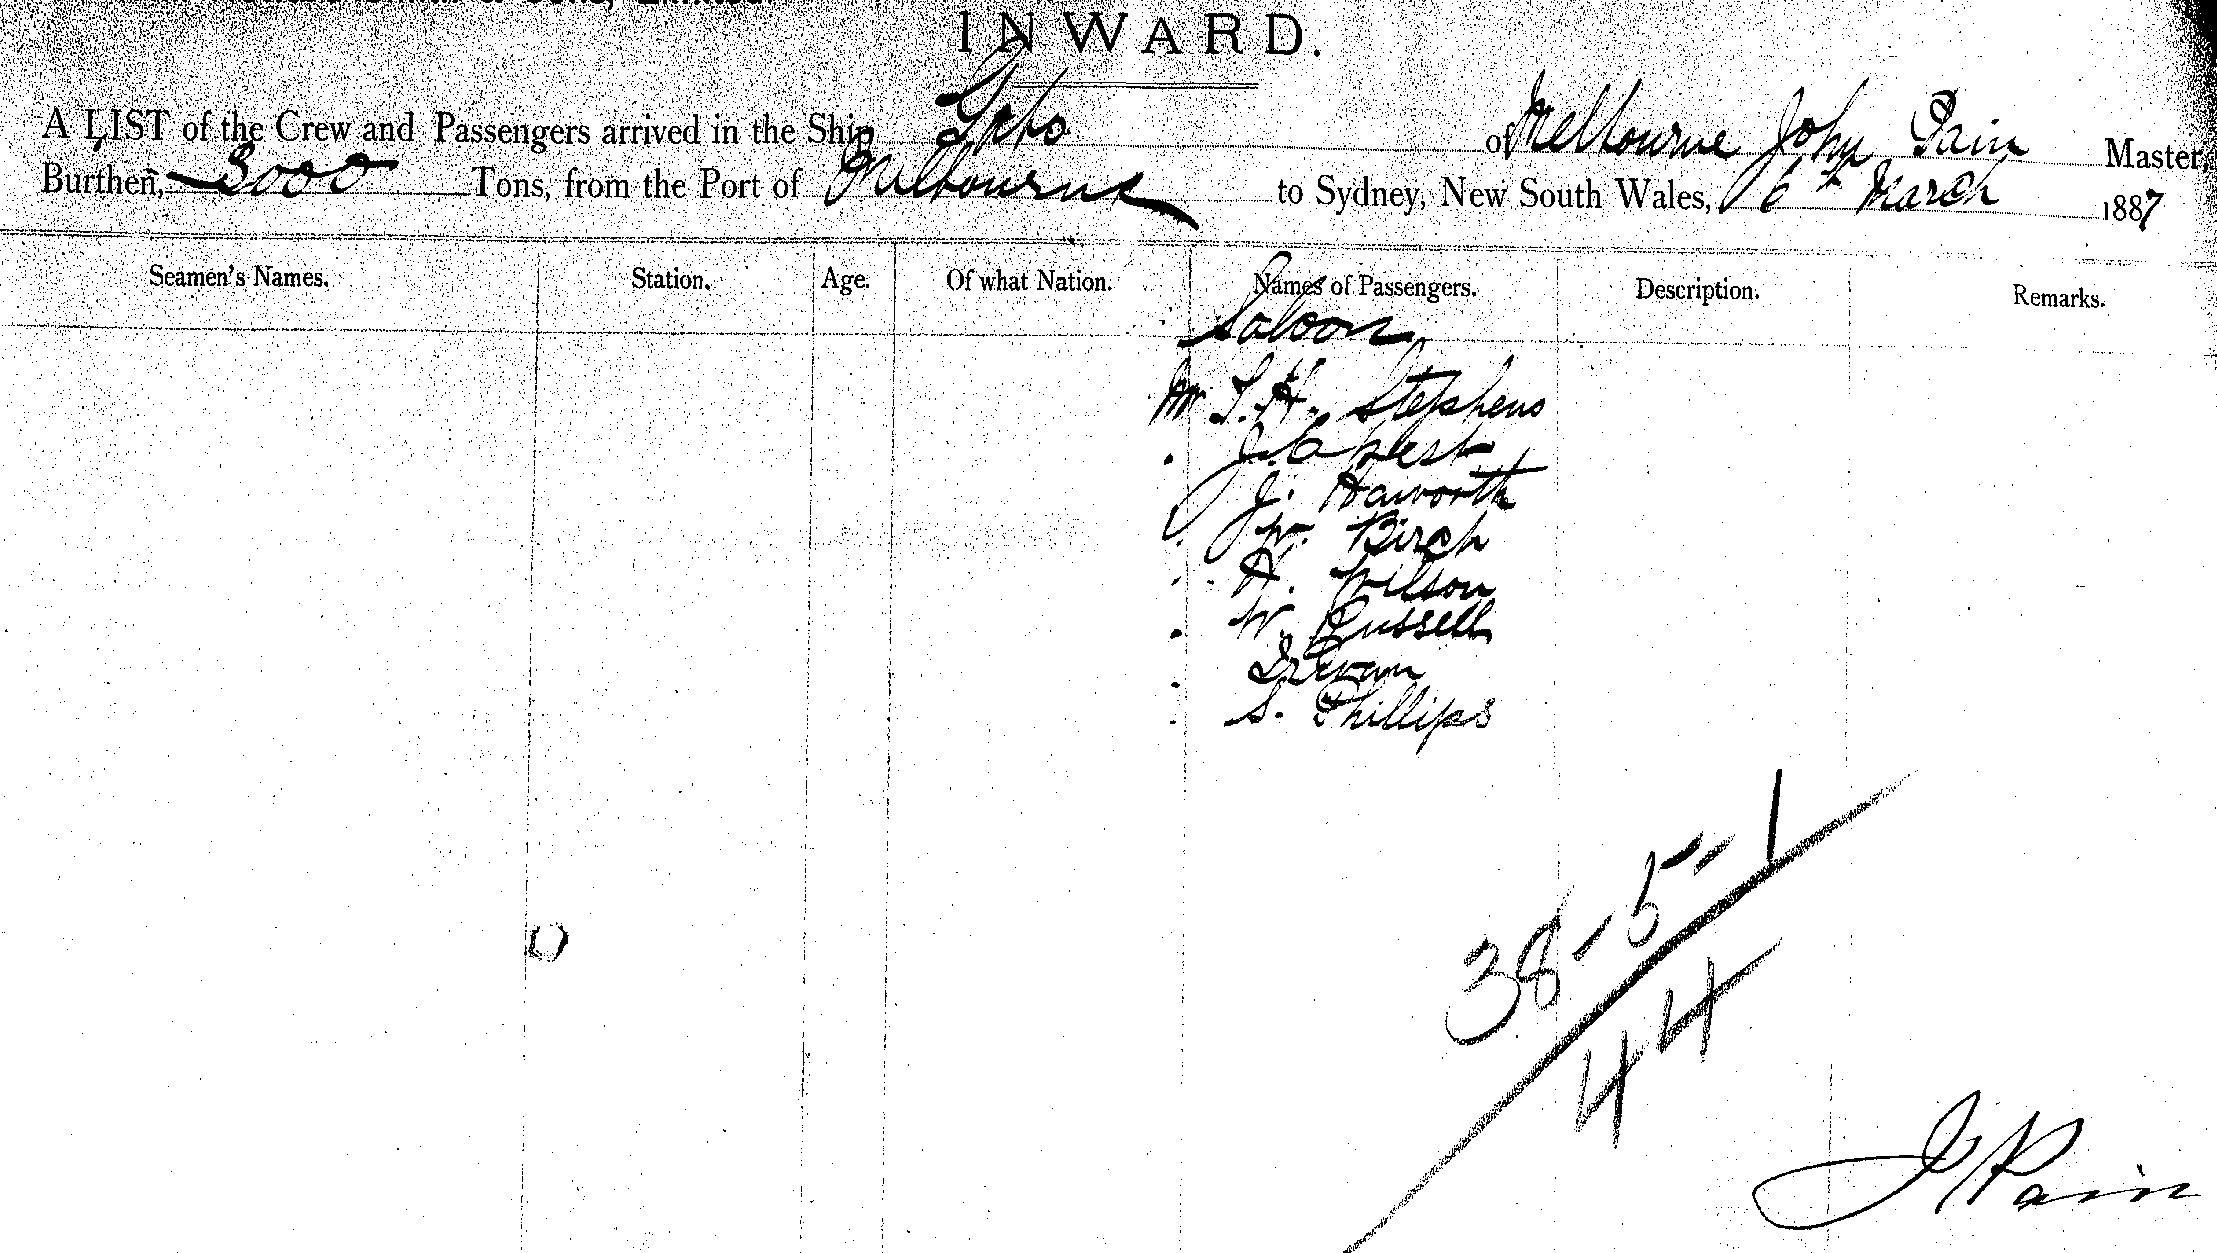 INWARD.
A LIST of the Crew and Passengers arrived in the Ship of Melbourne John Pain Master,
Burthen, 3000 Tons, from the Port of Melbourne to Sydney, New South Wales, 6th March 1887
Seamen's Names. Station. Age. Of what Nation. Names of Passengers. Description. Remarks.
Saloon
Mr S. H. Stephens
J. West
J. Haworth
W. Birch
H. Wilson
W. Russell
S. Phillips
38-5-1
44
J Pain